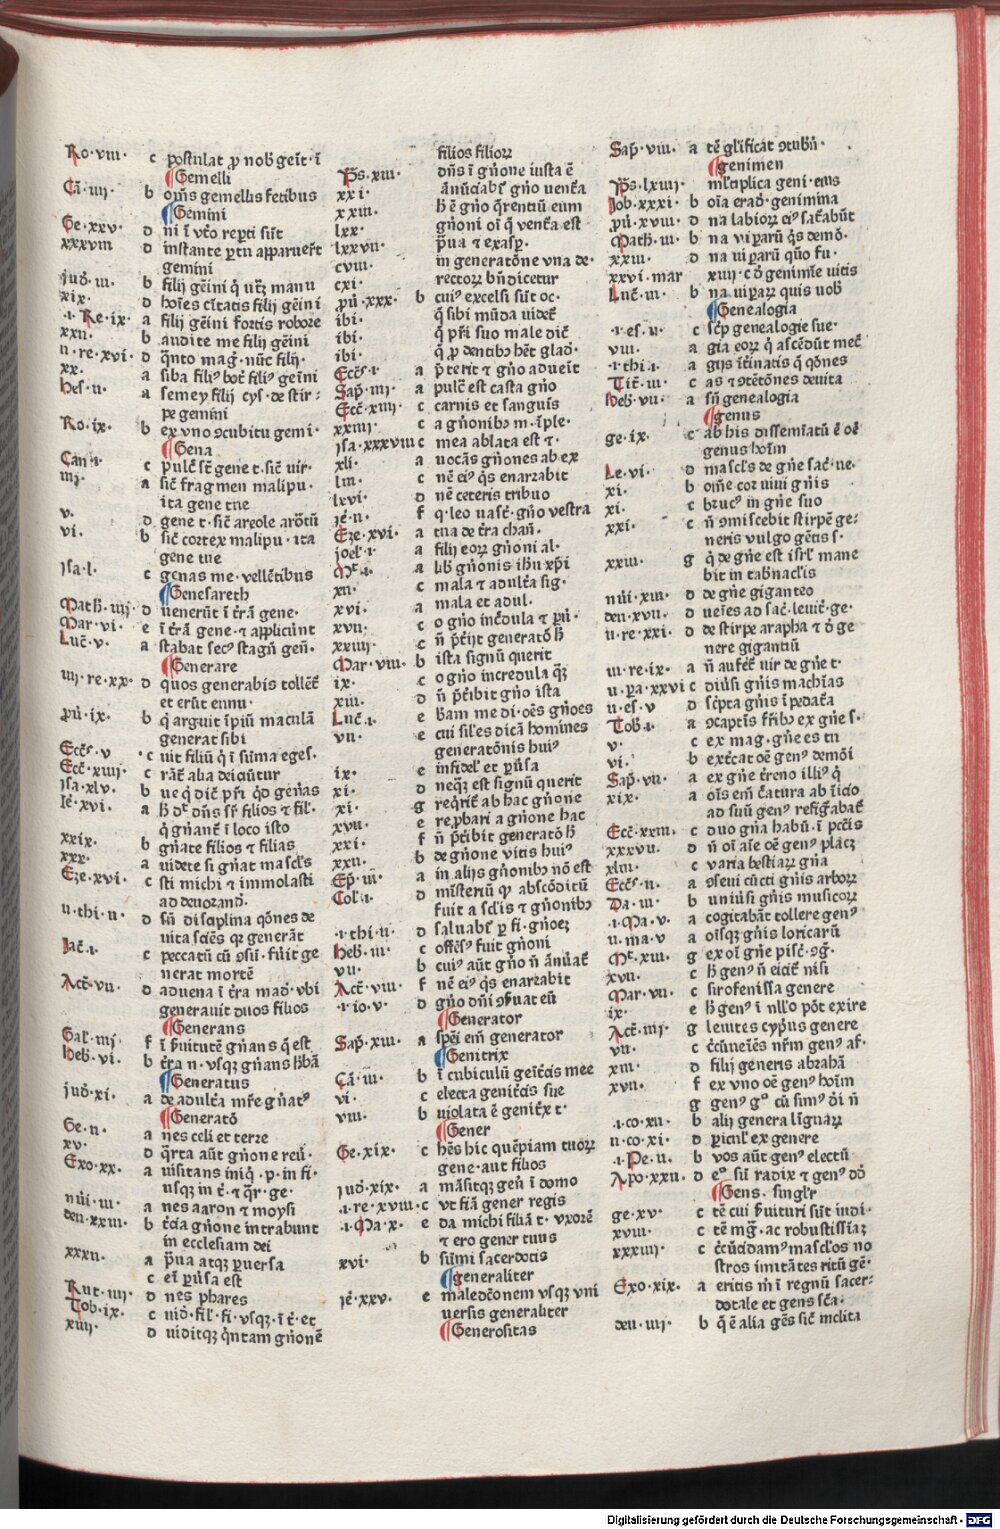 Ro·viii· c postulat ꝓ nob̕ geīt·ī
¶Gemelli
Cā·iiij· b oīns gemellus fetibus
¶Gemini
Ge·xxv· d ni ī vt̄o reꝑti sūt
xxxviii d instante ꝑtu apparuer̄t
gemini
jud̕·iii· b filij gēini q̄ utꝫ manu
xix· d hoīes cītatis filij gēini
·i·Re·ix· a filij gēini fortis robore
xxii· b audite me filij gēini
ii·re·xvi· d q̄nto mag̕ nūc filij·
xx· a siba fili⁹ bot̄ fili⁹ geīni
hes·ii· a semey filij cys·de stir⸗
pe gemini
Ro·ix· b ex vno ꝯcubitu gemi·
¶Gena
Can·i· c pulc̄ st̄ gene t·sic̄ tur·
iiij· a sic̄ fragmen malipu·
ita gene tue
v· d gene t·sic̄ areole aro̅tū
vi· b sic̄ cortex malipu·ita
gene tue
jsa·l· c genas me·vellētibus
¶Genesareth
Math̕·iiij· d uenerūt ī t̄rā gene·
Mar·vi· e ī t̄rā gene·⁊ applicūnt
Luc̄·v· a stabat sec⁹ stagn̄ gen̄·
¶Generare
iiij·re·xx· d quos generabis tollēt̄
et erūt eunu·
ꝓu̕·ix· b q̄ arguit īpiū maculā
generat sibi
Ecc̄s·v c uit filiū q̄ ī sūma eges·
Ecc̄·xiiij· c rāt̄ alia deiciūtur
jsa·xlv· b ue q̄ dic̄ pr̄i q̄d gen̄as
Ie̅·xvi· a h̄ d̄t dn̄s sr̄ filios ⁊ fil·
q̄ gn̄ant̄ ī loco isto
xxix· b gn̄ate filios ⁊ filias
xxx· a uidete si gn̄at mascl̄s
Eze·xvi· c sti michi ⁊ immolasti
ad deuorand̕·
ii·thi·ii· d sn̄ disciplina q̄ones de
uita sciēs qꝛ generāt
Jac̄·i· c peccatū cū ꝯsū·fu̕it ge
nerat mortē
Act̄·vii· d aduena ī t̄ra mad̕·vbi
generauit duos filios
¶Generans
Gal̕·iiij f ī ẜuitutē gn̄ans q̄ est
heb̕·vi· b t̄ra n·vsqꝫ gn̄ans h̄bā
¶Generatus
jud̕·xi· a de adult̄a mr̄e gn̄at⁹
¶Generatō
Ge·ii· a nes celi et terre
xv· d q̄rta aūt gn̄one reu̕·
Exo·xx· a uisitans iniq̄·p·in fi·
usqꝫ in t̄·⁊ q̄r·ge·
nūi·iii· a nes aaron ⁊ moysi
deu·xxiii· b t̄cia gn̄one intrabunt
in ecclesiam dei
xxxii· a p̄ua atqꝫ ꝑuersa
c eī ꝑu̕sa est
Rut·iiij· d nes phares
Tob·ix· c uid̕·fil̕·fi·vsqꝫ·ī t̄·et
xiiij· d uiditqꝫ q̄ntam gn̄onē
filios filioꝝ
Ps·xiii· dn̄s ī gn̄one iusta ē
xxi· ānūciab̕ gn̄o uent̄a
xxiii· h̄ ē gn̄o q̄rentiū eum
lxx· gn̄oni oī q̄ vent̄a est
lxxvii· p̄ua ⁊ exasp̱·
cviii· in generatōne vna de⸗
cxi· rectoꝝ bn̄dicetur
ꝓu̕·xxx· b cui⁹ excelsi sūt oc·
ibi· q̄ sibi mūda uidet̄
ibi· q̄ pr̄i suo male dic̄
ibi· q̄ ꝓ dentib⁹ hēt glad̕·
Ecc̄s·i a p̄terit ⁊ gn̄o adueīt
Sap̄·iiij· a pulc̄ est casta gn̄o
Ecc̄·xiiij· c carnis et sanguis
xxiiij· c a gn̄onib⁹ m·īple·
jsa·xxxviii c mea ablata est ⁊·
xli· a uocās gn̄ones ab ex
liii· c nē ei⁹ q̄s enarrabit
lxvi· d nē ceteris tribuo
je̅·ii· f q·leo uast̄·gn̄o vestra
Eze·xvi· a tua de t̄ra chan̄·
joel·i· a filij eoꝝ gn̄oni al·
Mt̄·i· a lib̕ gn̄onis ih̄u xp̄i
xii· c mala ⁊ adult̄a sig·
xvi· a mala et adul·
xvii· c o gn̄o inc̄dula ⁊ ꝑu̕·
xxiiij· c n̄ p̄t̄ijt generatō h̄
Mar·viii· b ista signū querit
ix· c o gn̄o incredula qꝫ
xiii· d n̄ p̄t̄ibit gn̄o ista
Luc̄·i· e b̄am me di·oēs gn̄oes
vii· e cui sil̄es dicā homines
generatōnis hui⁹
ix· e infidel̄ et ꝑu̕sa
xi· d neqꝫ est signū querit
xi· g req̄rit̄ ab hac gn̄one
xvii· e reꝓbari a gn̄one hac
xxi· f n̄ p̄t̄ibit generatō h̄
xxii· b de gn̄one vitis hui⁹
Ep̄·iii· a in alijs gn̄onib⁹ nō est
Col̕·i· d mīsteriū qͥ abscōditū
fuit a scl̄is ⁊ gn̄onib⁹
·i·thi·ii· d saluab̕t̄ ꝑ fi·gn̄oeꝫ
heb̕·iii· c offēs⁹ fuit gn̄oni
vii· b cui⁹ aūt gn̄o n̄ ānūat̄
Act̄·viii· f nē ei⁹ q̄s enarrabit
·i·io·v· d gn̄o dn̄i ꝯẜuat eū
¶Generator
Sap̄·xiii· a sp̄ei em̄ generator
¶Genitrix
Cā·iii· b ī cubiculū geīt̄cis mee
vi· c electa genit̄cis sue
viii· b uiolata ē genit̄x t·
¶Gener
Ge·xix· c hēs hic quēpiam tuoꝝ
gene·aut filios
jud̕·xix· a māsitqꝫ gen̄ ī domo
·i·re·xviii· c vt fiā gener regis
·i·Ma·x· e da michi filiā t·vxorē
⁊ ero gener tuus
xvi· b sūmi sacerdotis
¶generaliter
je̅·xxv· e maledc̄onem vsqꝫ vni
uersis generaliter
¶Generositas
Sap̄·viii· a tē gl̄ificāt ꝯtub̄n̄·
¶genimen
Ps·lxiiij· ml̄tiplica geni·eius
Job·xxxi· b oīa erad̕·genimina
ꝓu̕·xviii· d na labioꝝ ei⁹ sat̄abūt
Math̕·iii· b na viꝑarū q̄s demō·
xxiii· d na uiꝑarū quō fu·
xxvi·mar xiiij·c d̕ genimīe uitis
Luc̄·iii· b na uiꝑaꝝ quis uob̕
¶Genealogia
·i·es·ii· c sc̄p genealogie sue·
viii· a gia eoꝝ q̄ ascēdūt mec̄
·i·thi·i· a gijs īt̄īnatis q̄ q̄ones
Tit̄·iii· c as ⁊ ꝯtētōnes deuita
heb̕·vii· a sn̄ genealogia
¶genus
ge·ix· c ab his dissemīatū ē oē
genus hoīm
Le·vi· d mascl̄s de gn̄e sac̄·ue·
xi· b oīne cor uiui gn̄is
xi· c bruc⁹ in gn̄e suo
xxi· c n̄ ꝯmiscebit stirpē ge⸗
neris vulgo gētis s·
xxiii· g q̄ de gn̄e est isrl̄ mane
bit in tab̄nacl̄is
nūi·xiii· d de gn̄e giganteo
deu·xvii· d ueīes ad sac̄·leuit̄·ge·
ii·re·xxi· d de stirpe arapha ⁊ d̕ ge
nere gigantiū
iii·re·ix· a n̄ aufet̄ uir de gn̄e t·
ii·ꝑa·xxvi c diūsi gn̄is machīas
ii·es·v d sc̄pta gn̄is īpedat̄a
Tob·i· a ꝯcaptīs fr̄ib⁹ ex gn̄e s·
v· c ex mag·gn̄e es tu
vi· b ext̄cat oē gen⁹ demōi
Sap̄·vii· a ex gn̄e t̄reno illi⁹ q̄
xix· a oīs em̄ c̄atura ab īicio
ad suū gen⁹ refig̕abat̄
Ecc̄·xxiii· c duo gn̄a habū·ī pcc̄is
xxxvii· d n̄ oī aīe oē gen⁹ placꝫ
xliii· c varia bestiaꝝ gn̄a
Ecc̄s·ii· a ꝯseui cūcti gn̄is arboꝝ
Da·iii· b uniūsi gn̄is musicoꝝ
·i·Ma·v· a cogitabāt tollere gen⁹
ii·ma·v a oīsqꝫ gn̄is loricarū
Mt̄·xiii· g ex oī gn̄e pisc̄·ꝯg̕·
xvii· c h̄ gen⁹ n̄ eicit̄ nisi
Mar·vii· c sirofenissa genere
ix· e h̄ gen⁹ ī nll̄o pōt exire
Act̄·iiij· g leuites cyp̄us genere
vii· c c̄cūueīēs nr̄m gen⁹ af·
xiii· d filij generis abrahā
xvii· f ex vno oē gen⁹ hoīm
g gen⁹ gͦ cū sim⁹ d̕i n̄
·i·co·xii· b alij genera līguaꝝ
ii·co·xi· d ꝑicul̄ ex genere
·i·Pe·ii· b vos aūt gen⁹ electū
Apo·xxii· d eͦ sū radix ⁊ gen⁹ dd̕
¶Gens·singl̄r
ge·xv· c tē cui ẜuituri sūt iudi·
xviii· c tē mg̕·ac robustissiaꝫ
xxxiiij· c c̄cūcidam⁹ mascl̄os no
stros imitātes ritū gē·
Exo·xix· a eritis m̄ ī regnū sacer⸗
dotale et gens sc̄a·
deu·iiij· b q̄ ē alia gēs sic̄ inclita
Digitalisierung gefördert durch die Deutsche Forschungsgemeinschaft - DFG